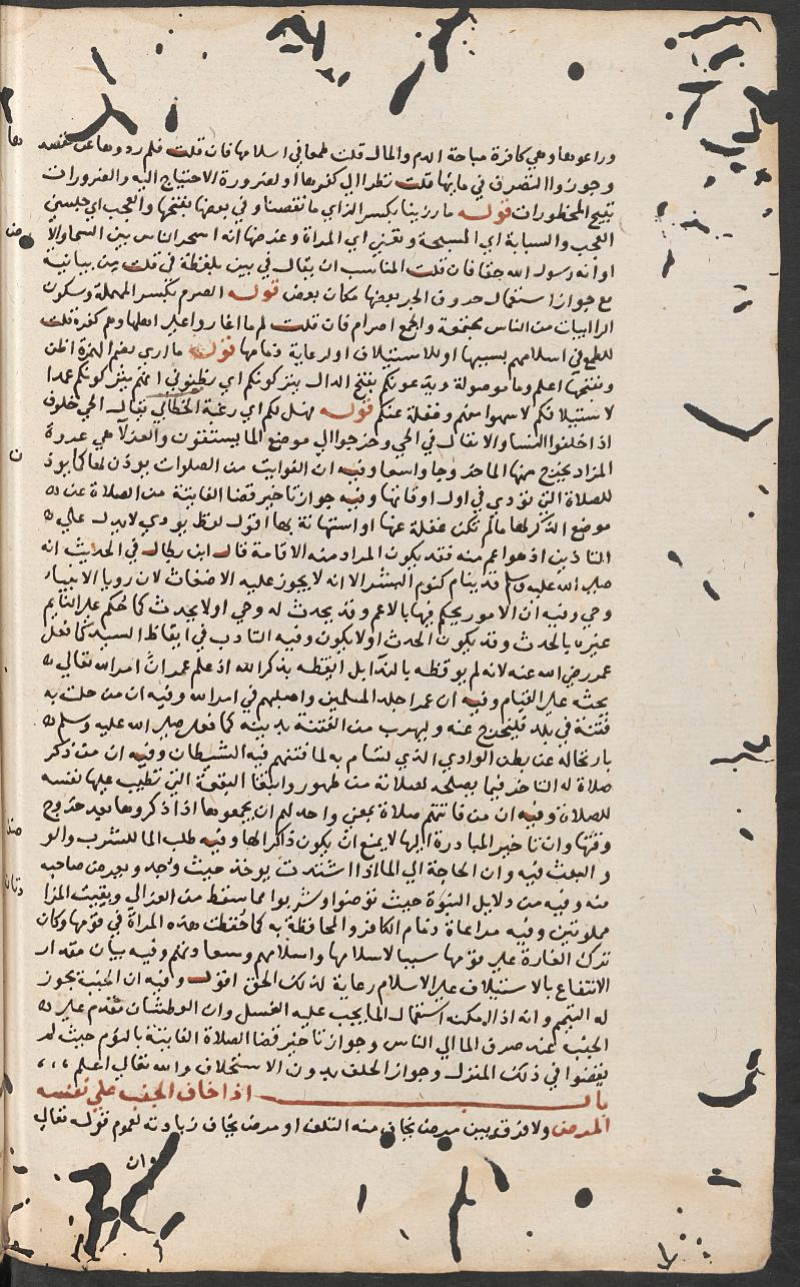 وراعوها وهي كافرة مباحة الدم والمال قلت طمعا في اسلامها فان قلت فلم ردوها عن نفسه
وجوزوا التصرف في مائها قلت نظرا الي كفرها او لضرورة الاحتياج اليه والضرورات
تبيح المحظورات قوله ما رزينا بكسر الزاي ما نقصنا وفي بعضها بفتحها والعجب اي حبسني
العجب والسبابة اي المسبحة وتعني اي المراة وغرضها انه اسحر الناس بين السما والا
او انه رسول الله حقا فان قلت المناسب ان يقال في بين بلفظة في قلت من بيانية
مع جواز استعمال حروف الجر بعضها مكان بعض قوله الصرم بكسر المهملة وسكون
الرا ابيات من الناس مجتمعة والجمع اصرام فان قلت لم ما اغاروا علي اهلها وهم كفرة قلت
للطمع في اسلامهم بسببها او للاستيلاف او لرعاية ذمامها قوله ما اري بضم الهمزة اظن
وبفتحها اعلم وما موصولة ويدعونكم بفتح الدال يتركونكم اي يظنوني انهم يتركونكم عمدا
لاستيلافكم لا سهوا منهم وغفلة عنكم قوله هل لكم اي رغبة الخطابي يقال الحي خلوف
اذا خلفوا النسا والاثقال في الحي وخرجوا الي موضع الما يستقون والعزلا هي عروة
المزاد يخرج منها الما خروجا واسعا وفيه ان الفوايت من الصلوات يوذن لها كما يوذ
للصلاة التي تودي في اول اوقاتها وفيه جواز تاخير قضا الفايتة من الصلاة عن
موضع الذكر لها ما لم تكن غفلة عنها او استهانة بها اقول لفظ نودي لا يدل علي
التاذين اذ هو اعم منه فقد يكون المراد منه الاقامة قال ابن بطال في الحديث انه
صلي الله عليه وسلم قد ينام كنوم البشر الا انه لا يجوز عليه الاضغاث لان رويا الانبياء
وحي وفيه ان الامور يحكم فيها بالاعم وقد يحدث له وحي اولا يحدث كما حكم علي النايم
غيره بالحدث وقد يكون الحدث اولا يكون وفيه التادب في ايقاظ السيد كما فعل
عمر رضي الله عنه لانه لم يوقظه بالندا بل ايقظه بذكر الله اذ علم عمر ان امر الله تعالي
يحثه علي القيام وفيه ان عمر اجلد المسلمين واصلبهم في امر الله وفيه ان من حلت به
فتنة في بلد فليخرج عنه وليهرب من الفتنة بدينه كما فعل صلي الله عليه وسلم
بارتحاله عن بطن الوادي الذي تشام به لما فتنهم فيه الشيطان وفيه ان من ذكر
صلاة له التاخر فيما يصلحه لصلاته من طهور وابتغا البقعة التي تطيب عليها نفسه
للصلاة وفيه ان من فاتتهم صلاة بمعني واحد لهم ان يجمعوها اذا ذكروها بعد خروج
وقتها وان تاخير المبادرة اليها لا يمنع ان يكون ذاكرا لها وفيه طلب الما للشرب والو
والبعث فيه وان الحاجة الي الما اذا اشتدت يوخذ حيث وجد ويعوض صاحبه
منه وفيه من دلايل النبوة حيث توضوا وشربوا مما سقط من العزالي وبقيت المزا
مملوتين وفيه مراعاة ذمام الكافر والمحافظة به كما حفظت هذه المراة في قومها وكان
ترك الغارة علي قومها سببا لاسلامها واسلامهم وسعادتهم وفيه بيان مقدار
الانتفاع بالاستيلاف علي الاسلام رعاية لذلك الحق اقول وفيه ان الجنب يجوز
له التيمم وانه اذا امكنه استعمال الما يجب عليه الغسل وان العطشان تقدم علي
الجنب عند صرف الما الي الناس وجواز تاخير قضا الصلاة الفايتة بالنوم حيث لم
يقضوا في ذلك المنزل وجواز الحلف بدون الاستحلاف والله تعالي اعلم
باب اذا خاف الجنب علي نفسه
المرض ولا فرق بين مرض يخاف منه التلف او مرض يخاف زيادته لعموم قوله تعالي
وان